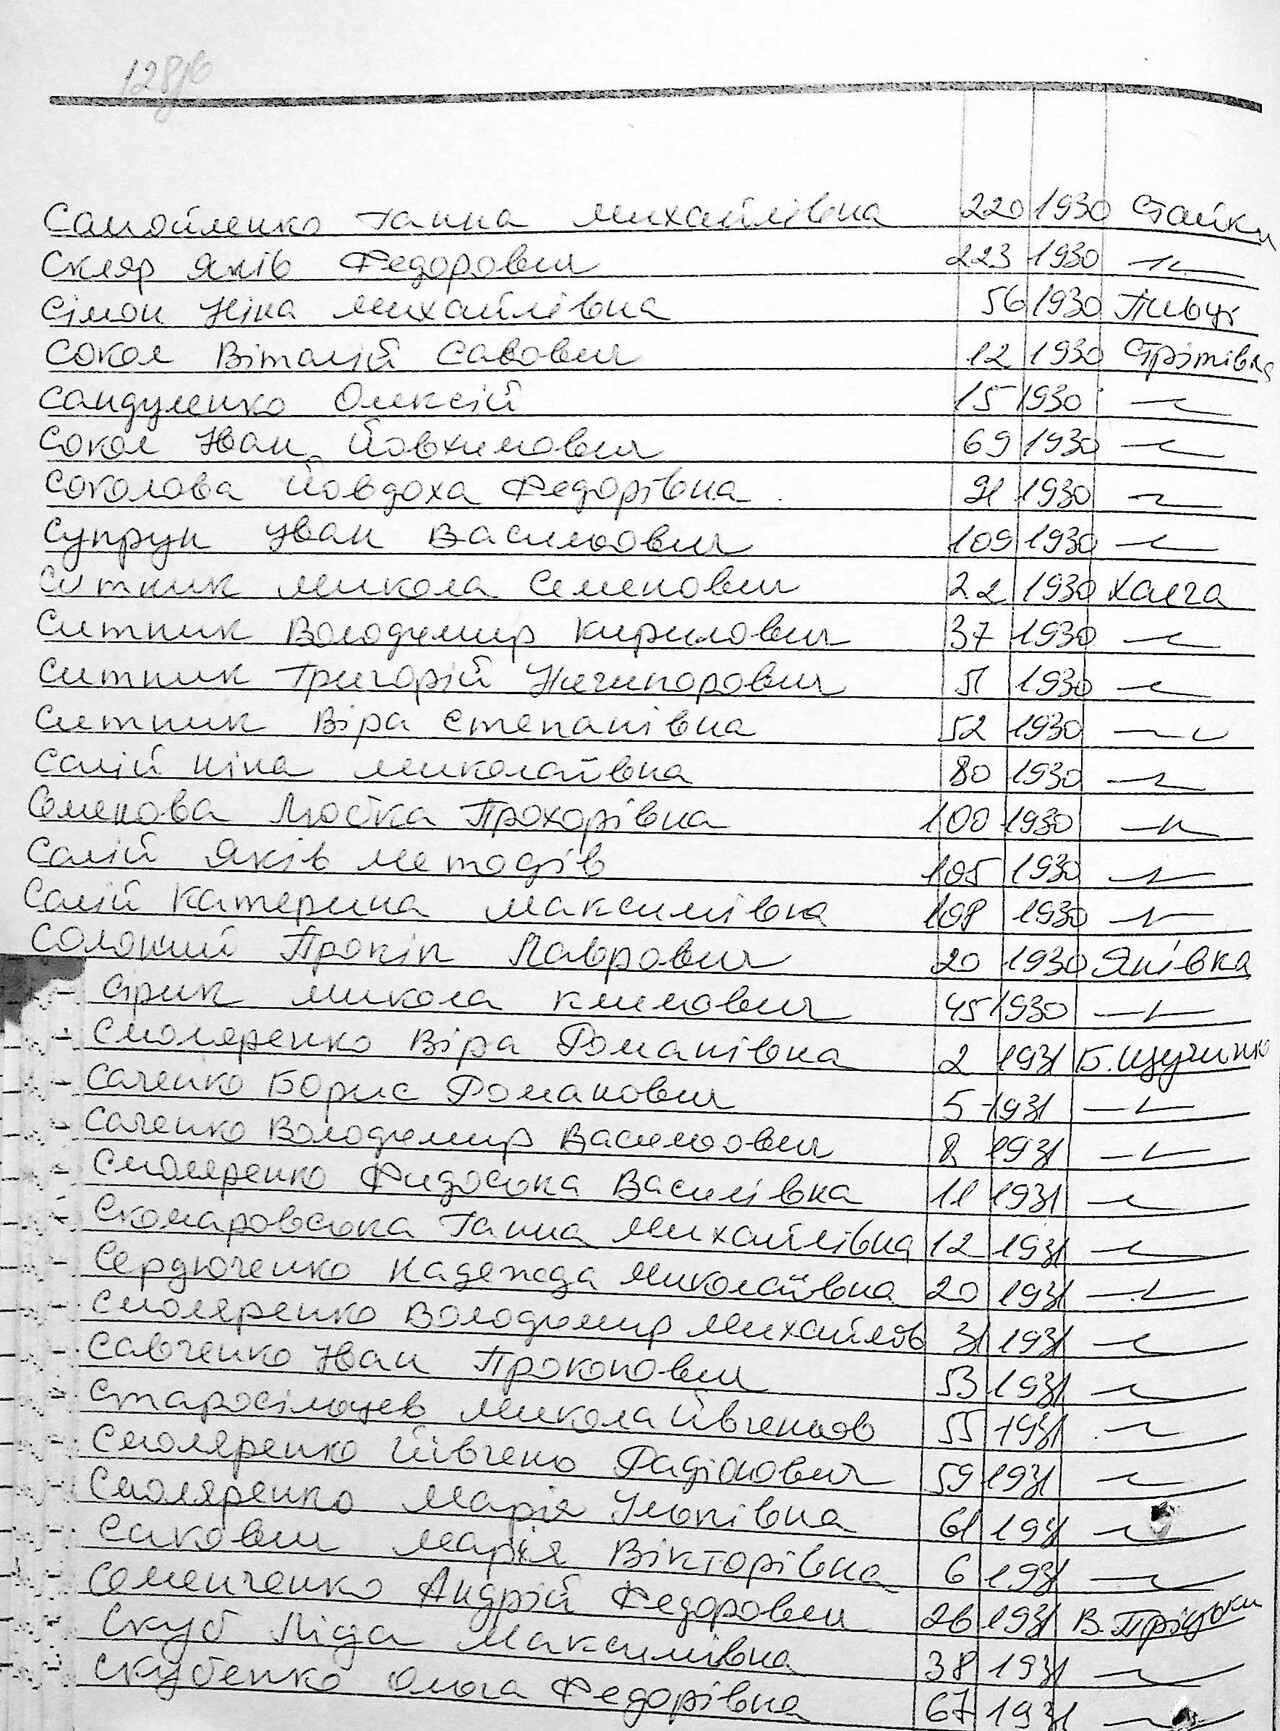 128/6
Самойленко Ганна Михайлівна 220 1930 Стайки
Скляр Яків Федорович 223 1930 —"—
Сімон Ніна Михайлівна 56 1930 Пивці
Сокол Віталій Савович 12 1930 Стрітівка
Сандуленко Олексій 15 1930 —"—
Сокол Іван Йовхимович 69 1930 —"—
Соколова Йовдоха Федорівна 91 1930 —"—
Супрун Іван Васильович 109 1930 —"—
Ситник Микола Семенович 22 1930 Халча
Ситник Володимир Кирилович 37 1930 —"—
Ситник Григорій Ничипорович 51 1930 —"—
Ситник Віра Степанівна 52 1930 —"—
Салій Ніна Миколаївна 80 1930 —"—
Семенова Любка Прохорівна 100 1930 —"—
Салій Яків Методів 105 1930 —"—
Салій Катерина Максимівна 108 1930 —"—
Солокий Прокіп Лаврович 20 1930 Янівка
Сірик Микола Климович 45 1930 —"—
Смоляренко Віра Романівна 2 1931 Б. Щучинка
Саченко Борис Романович 5 1931 —"—
Саченко Володимир Васильович 8 1931 —"—
Смоляренко Фидоська Василівна 11 1931 —"—
Скомаровська Ганна Михайлівна 12 1931 —"—
Сердюченко Надежда Миколаївна 20 1931 —"—
Смоляренко Володимир Михайлов 31 1931 —"—
Савченко Іван Прокопович 53 1931 —"—
Старосільцев Микола Йвгеньов 55 1931 —"—
Смоляренко Йівгень Радіонович 59 1931 —"—
Смоляренко Марія Юхимівна 61 1931 —"—
Сакович Марія Вікторівна 6 1931 —"—
Семенченко Андрій Федорович 26 1931 В. Пріцьки
Скуб Ліда Максимівна 38 1931 —"—
Скубенко Ольга Федорівна 67 1931 —"—